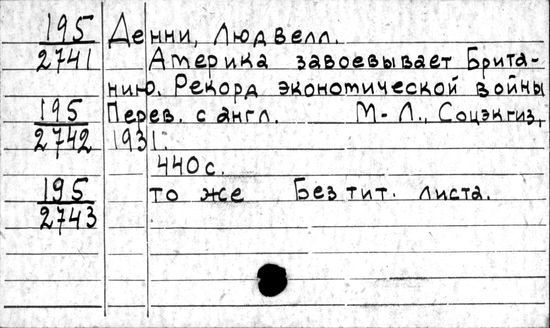 195 Денни, Людвелл.
2741 Америка завоевывает Брита-
нию. Рекорд экономической войны
195 Перев. с англ. М-Л., Соцэкгиз,
2742 1931.
440 с.
195 то же Без тит. листа.
2743